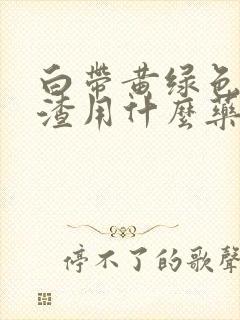 白带黄绿色
渣用什麼藥
停不了的歌聲